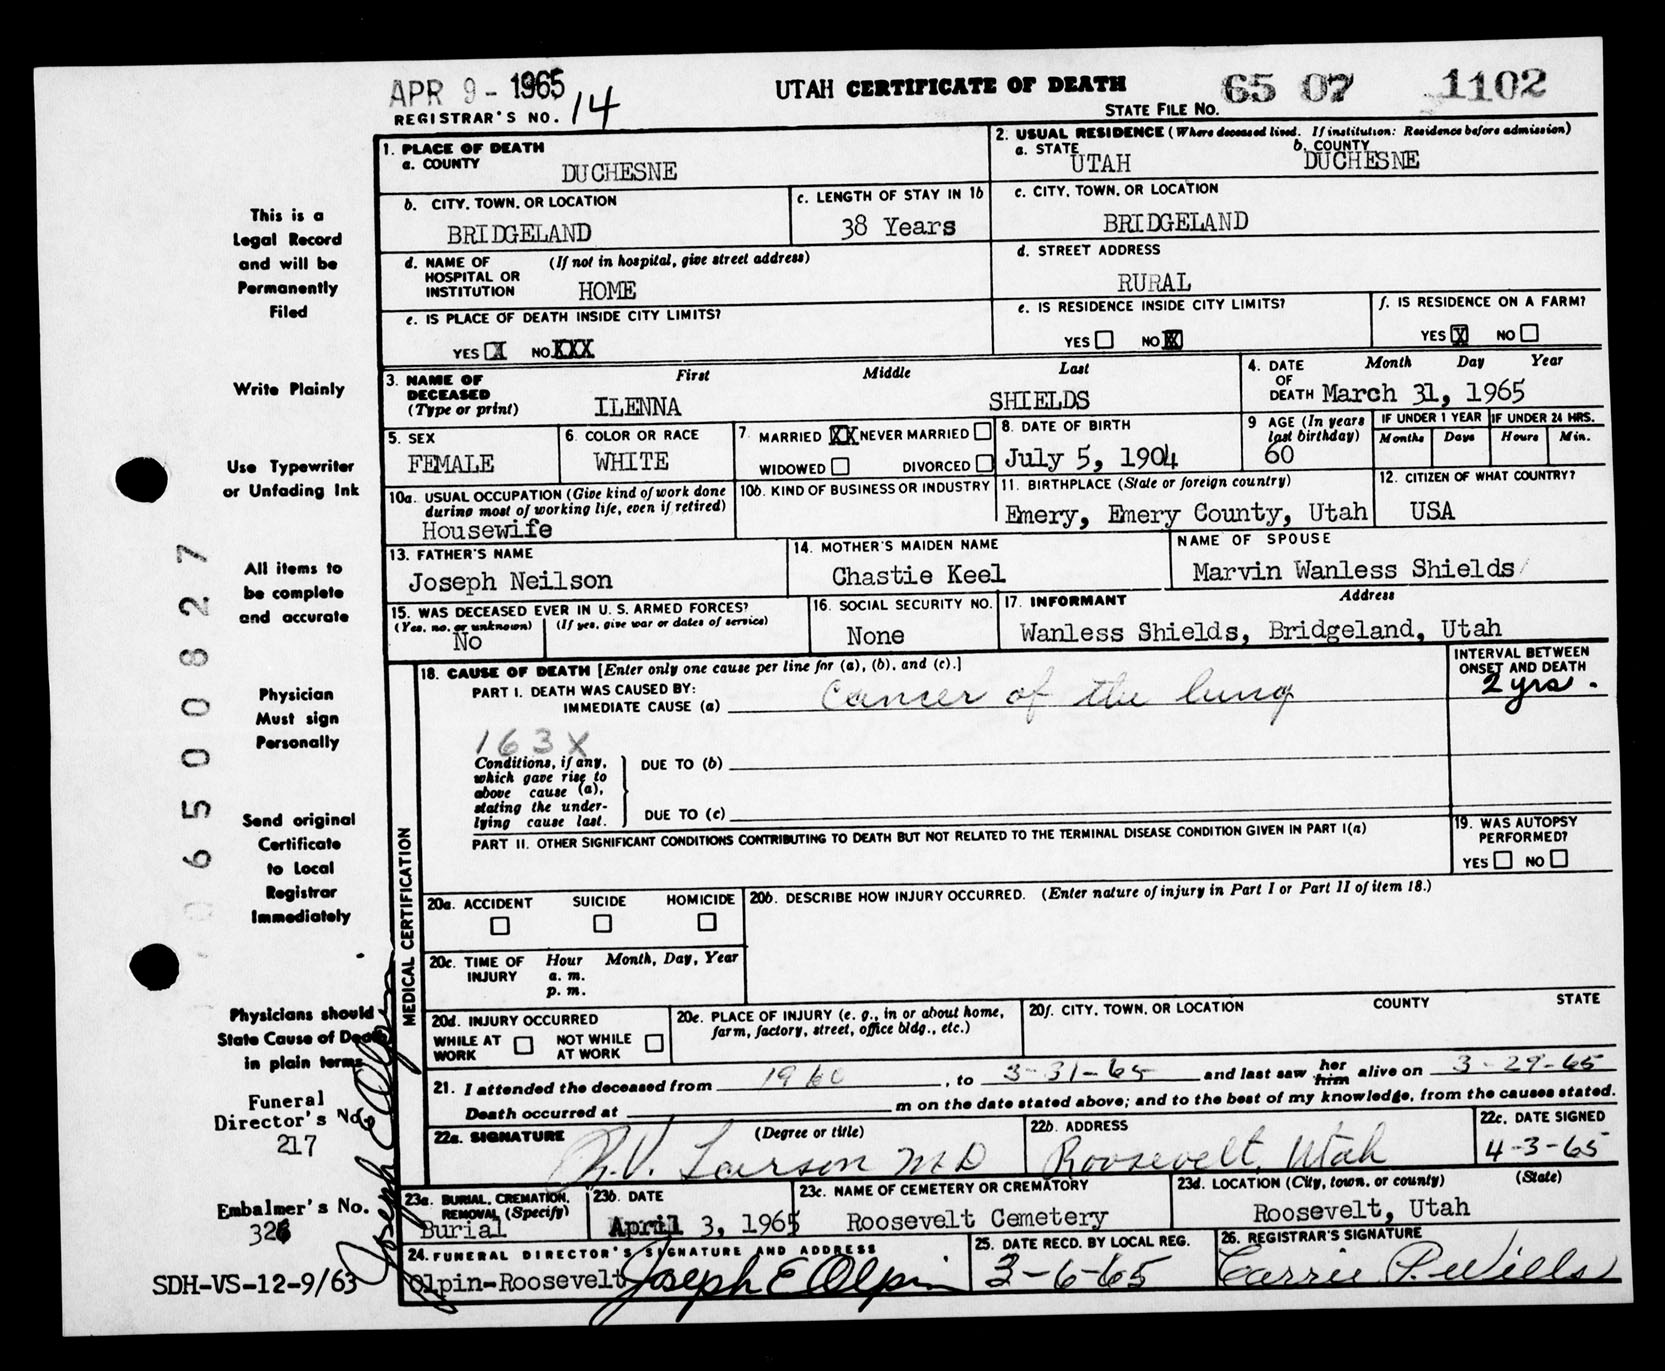 APR 9 - 1965
UTAH CERTIFICATE OF DEATH
65 07 1102
STATE FILE NO.
REGISTRAR'S NO. 14
1. PLACE OF DEATH
a. COUNTY
DUCHESNE
2. USUAL RESIDENCE (Where deceased lived. If institution: Residence before admission)
a. STATE
UTAH
b. COUNTY
DUCHESNE
b. CITY, TOWN, OR LOCATION
BRIDGELAND
c. LENGTH OF STAY IN 1b
38 Years
c. CITY, TOWN, OR LOCATION
BRIDGELAND
d. NAME OF HOSPITAL OR INSTITUTION
(If not in hospital, give street address)
HOME
d. STREET ADDRESS
RURAL
e. IS PLACE OF DEATH INSIDE CITY LIMITS?
YES X NO XXX
e. IS RESIDENCE INSIDE CITY LIMITS?
YES NO X
f. IS RESIDENCE ON A FARM?
YES X NO
3. NAME OF DECEASED
(Type or print)
First Middle Last
ILENNA SHIELDS
4. DATE OF DEATH
Month Day Year
March 31, 1965
5. SEX
FEMALE
6. COLOR OR RACE
WHITE
7. MARRIED XX NEVER MARRIED
WIDOWED DIVORCED
8. DATE OF BIRTH
July 5, 1904
9 AGE (In years last birthday)
60
IF UNDER 1 YEAR
Months Days
IF UNDER 24 HRS.
Hours Min.
10a. USUAL OCCUPATION (Give kind of work done during most of working life, even if retired)
Housewife
10b. KIND OF BUSINESS OR INDUSTRY
11. BIRTHPLACE (State or foreign country)
Emery, Emery County, Utah
12. CITIZEN OF WHAT COUNTRY?
USA
13. FATHER'S NAME
Joseph Neilson
14. MOTHER'S MAIDEN NAME
Chastie Keel
NAME OF SPOUSE
Marvin Wanless Shields
15. WAS DECEASED EVER IN U. S. ARMED FORCES?
(Yes, no, or unknown) (If yes, give war or dates of service)
No
16. SOCIAL SECURITY NO.
None
17. INFORMANT Address
Wanless Shields, Bridgeland, Utah
MEDICAL CERTIFICATION
18. CAUSE OF DEATH [Enter only one cause per line for (a), (b), and (c).]
INTERVAL BETWEEN ONSET AND DEATH
PART I. DEATH WAS CAUSED BY:
IMMEDIATE CAUSE (a) Cancer of the lung
2 yrs.
163X
Conditions, if any, which gave rise to above cause (a), stating the underlying cause last.
DUE TO (b)
DUE TO (c)
PART II. OTHER SIGNIFICANT CONDITIONS CONTRIBUTING TO DEATH BUT NOT RELATED TO THE TERMINAL DISEASE CONDITION GIVEN IN PART I(a)
19. WAS AUTOPSY PERFORMED?
YES NO
20a. ACCIDENT SUICIDE HOMICIDE
20b. DESCRIBE HOW INJURY OCCURRED. (Enter nature of injury in Part I or Part II of item 18.)
20c. TIME OF INJURY
Hour Month, Day, Year
a. m.
p. m.
20d. INJURY OCCURRED
WHILE AT WORK NOT WHILE AT WORK
20e. PLACE OF INJURY (e. g., in or about home, farm, factory, street, office bldg., etc.)
20f. CITY, TOWN, OR LOCATION COUNTY STATE
21. I attended the deceased from 1960, to 3-31-65 and last saw her him alive on 3-29-65
Death occurred at m on the date stated above; and to the best of my knowledge, from the causes stated.
22a. SIGNATURE (Degree or title)
R.V. Larson MD
22b. ADDRESS
Roosevelt, Utah
22c. DATE SIGNED
4-3-65
23a. BURIAL, CREMATION, REMOVAL (Specify)
Burial
23b. DATE
April 3, 1965
23c. NAME OF CEMETERY OR CREMATORY
Roosevelt Cemetery
23d. LOCATION (City, town, or county) (State)
Roosevelt, Utah
24. FUNERAL DIRECTOR'S SIGNATURE AND ADDRESS
Olpin-Roosevelt Joseph E Olpin
25. DATE RECD. BY LOCAL REG.
3-6-65
26. REGISTRAR'S SIGNATURE
Carrie P. Wills
This is a
Legal Record
and will be
Permanently
Filed
Write Plainly
Use Typewriter
or Unfading Ink
All items to
be complete
and accurate
Physician
Must sign
Personally
Send original
Certificate
to Local
Registrar
Immediately
Physicians should
State Cause of Death
in plain terms
Funeral
Director's No.
217
Embalmer's No.
326
Joseph E Olpin
0 6 5 0 0 8 2 7
SDH-VS-12-9/63